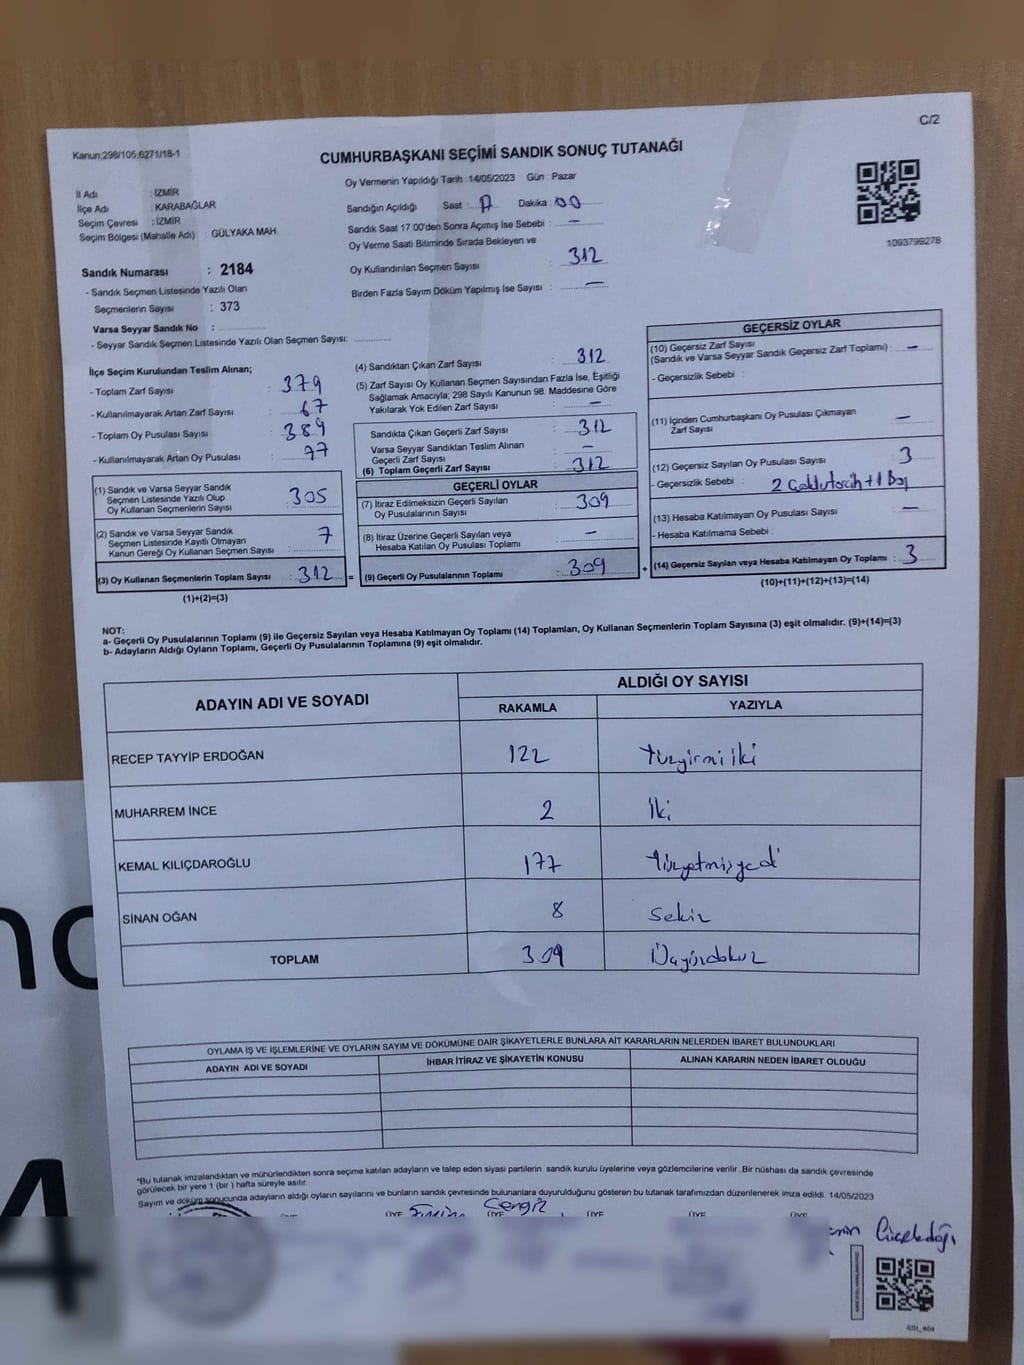 C/2
Kanun:298/105,6271/18-1
CUMHURBAŞKANI SEÇİMİ SANDIK SONUÇ TUTANAĞI
Oy Vermenin Yapıldığı Tarih : 14/05/2023 Gün : Pazar
İl Adı : İZMİR
İlçe Adı : KARABAĞLAR
Seçim Çevresi : İZMİR
Seçim Bölgesi (Mahalle Adı) : GÜLYAKA MAH.
Sandık Numarası : 2184
- Sandık Seçmen Listesinde Yazılı Olan
Seçmenlerin Sayısı : 373
Varsa Seyyar Sandık No :
- Seyyar Sandık Seçmen Listesinde Yazılı Olan Seçmen Sayısı:
Sandığın Açıldığı Saat : 17 Dakika : 00
Sandık Saat 17:00'den Sonra Açımış İse Sebebi : —
Oy Verme Saati Bitiminde Sırada Bekleyen ve
Oy Kullandırılan Seçmen Sayısı : 312
Birden Fazla Sayım Döküm Yapılmış İse Sayısı : —
1093799278
İlçe Seçim Kurulundan Teslim Alınan;
- Toplam Zarf Sayısı : 379
- Kullanılmayarak Artan Zarf Sayısı : 67
- Toplam Oy Pusulası Sayısı : 389
- Kullanılmayarak Artan Oy Pusulası : 77
(1) Sandık ve Varsa Seyyar Sandık
Seçmen Listesinde Yazılı Olup
Oy Kullanan Seçmenlerin Sayısı : 305
(2) Sandık ve Varsa Seyyar Sandık
Seçmen Listesinde Kayıtlı Olmayan
Kanun Gereği Oy Kullanan Seçmen Sayısı : 7
(3) Oy Kullanan Seçmenlerin Toplam Sayısı : 312 =
(1)+(2)=(3)
(4) Sandıktan Çıkan Zarf Sayısı : 312
(5) Zarf Sayısı Oy Kullanan Seçmen Sayısından Fazla İse, Eşitliği
Sağlamak Amacıyla; 298 Sayılı Kanunun 98. Maddesine Göre
Yakılarak Yok Edilen Zarf Sayısı : —
Sandıkta Çıkan Geçerli Zarf Sayısı : 312
Varsa Seyyar Sandıktan Teslim Alınan
Geçerli Zarf Sayısı : —
(6) Toplam Geçerli Zarf Sayısı : 312
GEÇERLİ OYLAR
(7) İtiraz Edilmeksizin Geçerli Sayılan
Oy Pusulalarının Sayısı : 309
(8) İtiraz Üzerine Geçerli Sayılan veya
Hesaba Katılan Oy Pusulası Toplamı : —
(9) Geçerli Oy Pusulalarının Toplamı : 309 +
GEÇERSİZ OYLAR
(10) Geçersiz Zarf Sayısı
(Sandık ve Varsa Seyyar Sandık Geçersiz Zarf Toplamı) : —
- Geçersizlik Sebebi :
(11) İçinden Cumhurbaşkanı Oy Pusulası Çıkmayan
Zarf Sayısı : —
(12) Geçersiz Sayılan Oy Pusulası Sayısı : 3
- Geçersizlik Sebebi : 2 Çoklu tercih + 1 Boş
(13) Hesaba Katılmayan Oy Pusulası Sayısı : —
- Hesaba Katılmama Sebebi :
(14) Geçersiz Sayılan veya Hesaba Katılmayan Oy Toplamı : 3
(10)+(11)+(12)+(13)=(14)
NOT:
a- Geçerli Oy Pusulalarının Toplamı (9) ile Geçersiz Sayılan veya Hesaba Katılmayan Oy Toplamı (14) Toplamları, Oy Kullanan Seçmenlerin Toplam Sayısına (3) eşit olmalıdır. (9)+(14)=(3)
b- Adayların Aldığı Oyların Toplamı, Geçerli Oy Pusulalarının Toplamına (9) eşit olmalıdır.
ADAYIN ADI VE SOYADI ALDIĞI OY SAYISI
RAKAMLA YAZIYLA
RECEP TAYYİP ERDOĞAN 122 Yüzyirmi iki
MUHARREM İNCE 2 İki
KEMAL KILIÇDAROĞLU 177 Yüzyetmişyedi
SİNAN OĞAN 8 Sekiz
TOPLAM 309 Üçyüzdokuz
OYLAMA İŞ VE İŞLEMLERİNE VE OYLARIN SAYIM VE DÖKÜMÜNE DAİR ŞİKAYETLERLE BUNLARA AİT KARARLARIN NELERDEN İBARET BULUNDUKLARI
ADAYIN ADI VE SOYADI İHBAR İTİRAZ VE ŞİKAYETİN KONUSU ALINAN KARARIN NEDEN İBARET OLDUĞU
*Bu tutanak imzalandıktan ve mühürlendikten sonra seçime katılan adayların ve talep eden siyasi partilerin sandık kurulu üyelerine veya gözlemcilerine verilir. Bir nüshası da sandık çevresinde
görülecek bir yere 1 (bir) hafta süreyle asılır.
Sayım ve döküm sonucunda adayların aldığı oyların sayılarını ve bunların sandık çevresinde bulunanlara duyurulduğunu gösteren bu tutanak tarafımızdan düzenlenerek imza edildi. 14/05/2023
ÜYE ÜYE Cengiz ÜYE ÜYE ÜYE